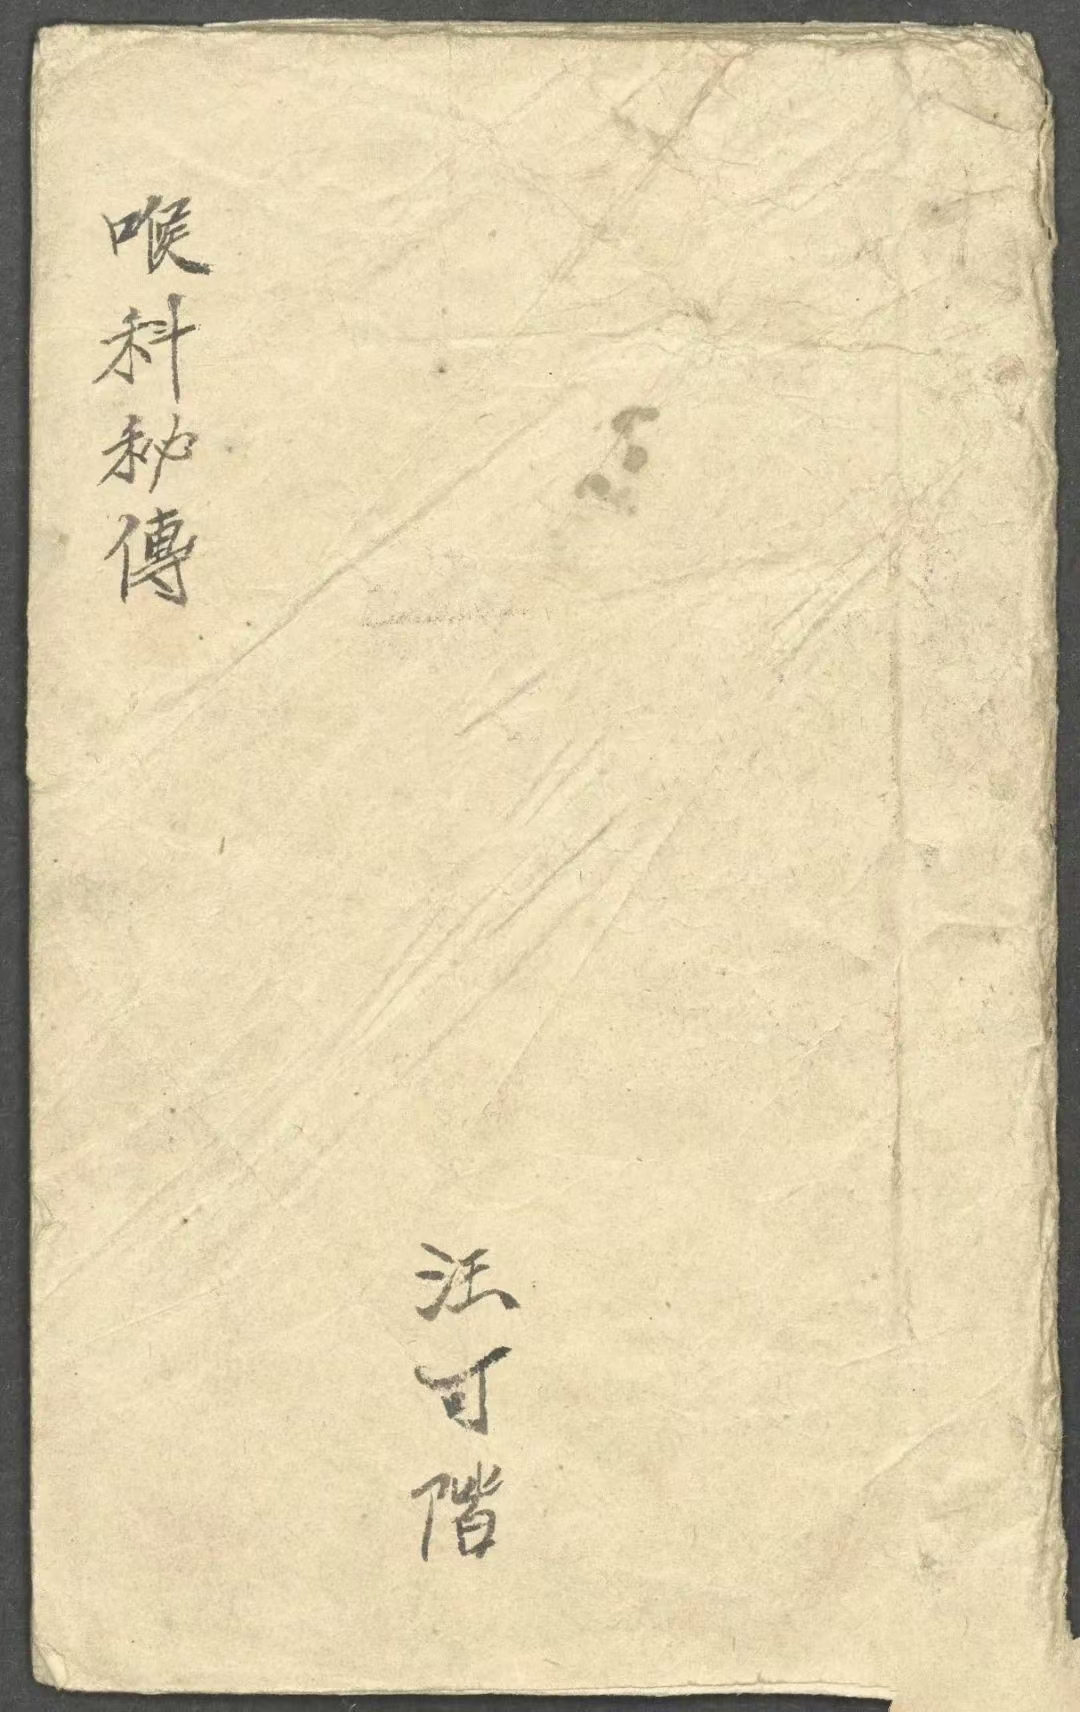 喉科秘傳
汪可階